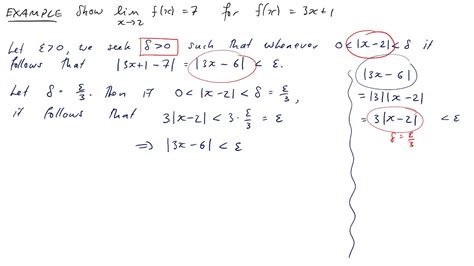 EXAMPLE Show lim x→2 f(x) = 7 for f(x) = 3x+1
Let ε>0, we seek δ>0 such that whenever 0<|x-2|<δ it
follows that |3x+1-7| = |3x-6| < ε.
Let δ = ε/3. Then if 0<|x-2|<δ = ε/3,
it follows that 3|x-2| < 3·ε/3 = ε
⇒ |3x-6| < ε
|3x-6|
= |3||x-2|
= 3|x-2| < ε
δ = ε/3